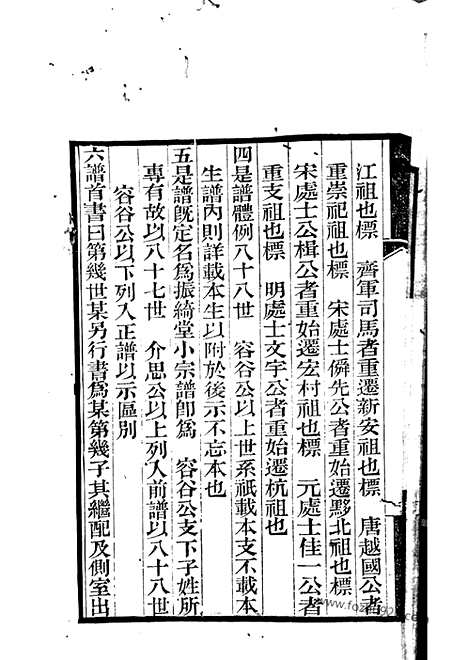 江祖也標　齊軍司馬者重遷新安祖也標　唐越國公者
重崇祀祖也標　宋處士儛先公者重始遷黟北祖也標
宋處士公楫公者重始遷宏村祖也標　元處士佳一公者
重支祖也標　明處士文宇公者重始遷杭祖也
四是譜體例八十八世　容谷公以上世系祇載本支不載本
生譜內則詳載本生以附於後示不忘本也
五是譜旣定名爲振綺堂小宗譜卽爲　容谷公支下子姓所
專有故以八十七世　介思公以上列入前譜以八十八世
容谷公以下列入正譜以示區別
六譜首書曰第幾世某另行書爲某第幾子其繼配及側室出